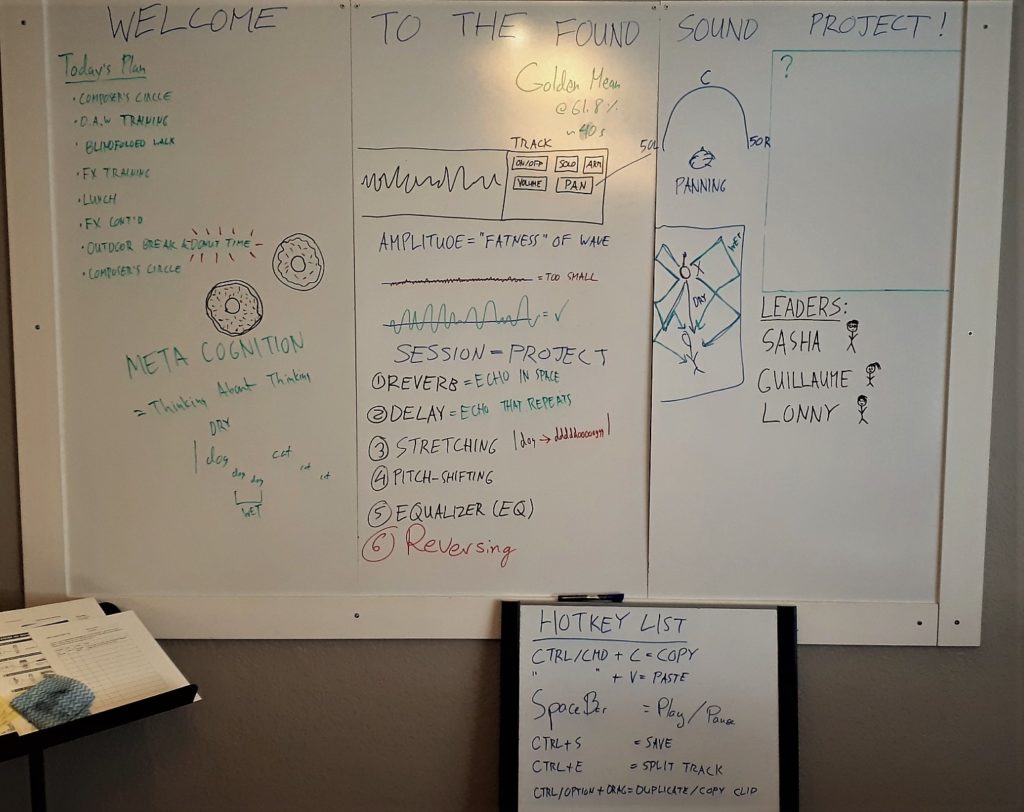 WELCOME TO THE FOUND SOUND PROJECT!
Today's Plan
• COMPOSER'S CIRCLE
• D.A.W TRAINING
• BLINDFOLDED WALK
• FX TRAINING
• LUNCH
• FX CONT'D
• OUTDOOR BREAK & DONUT TIME
• COMPOSER'S CIRCLE
META COGNITION
= Thinking About Thinking
DRY
dog cat
dog cat
dog cat
WET
Golden Mean
@ 61.8%
~ 40s
TRACK
ON/OFF SOLO ARM
VOLUME PAN
AMPLITUDE = "FATNESS" OF WAVE
= TOO SMALL
= ✓
SESSION = PROJECT
① REVERB = ECHO IN SPACE
② DELAY = ECHO THAT REPEATS
③ STRETCHING | dog → dddddooooggg |
④ PITCH-SHIFTING
⑤ EQUALIZER (EQ)
⑥ Reversing
C
50L 50R
PANNING
WET
DRY
?
LEADERS:
SASHA
GUILLAUME
LONNY
HOTKEY LIST
CTRL/CMD + C = COPY
" " + V = PASTE
SpaceBar = Play/Pause
CTRL+S = SAVE
CTRL+E = SPLIT TRACK
CTRL/OPTION + DRAG = DUPLICATE/COPY CLIP